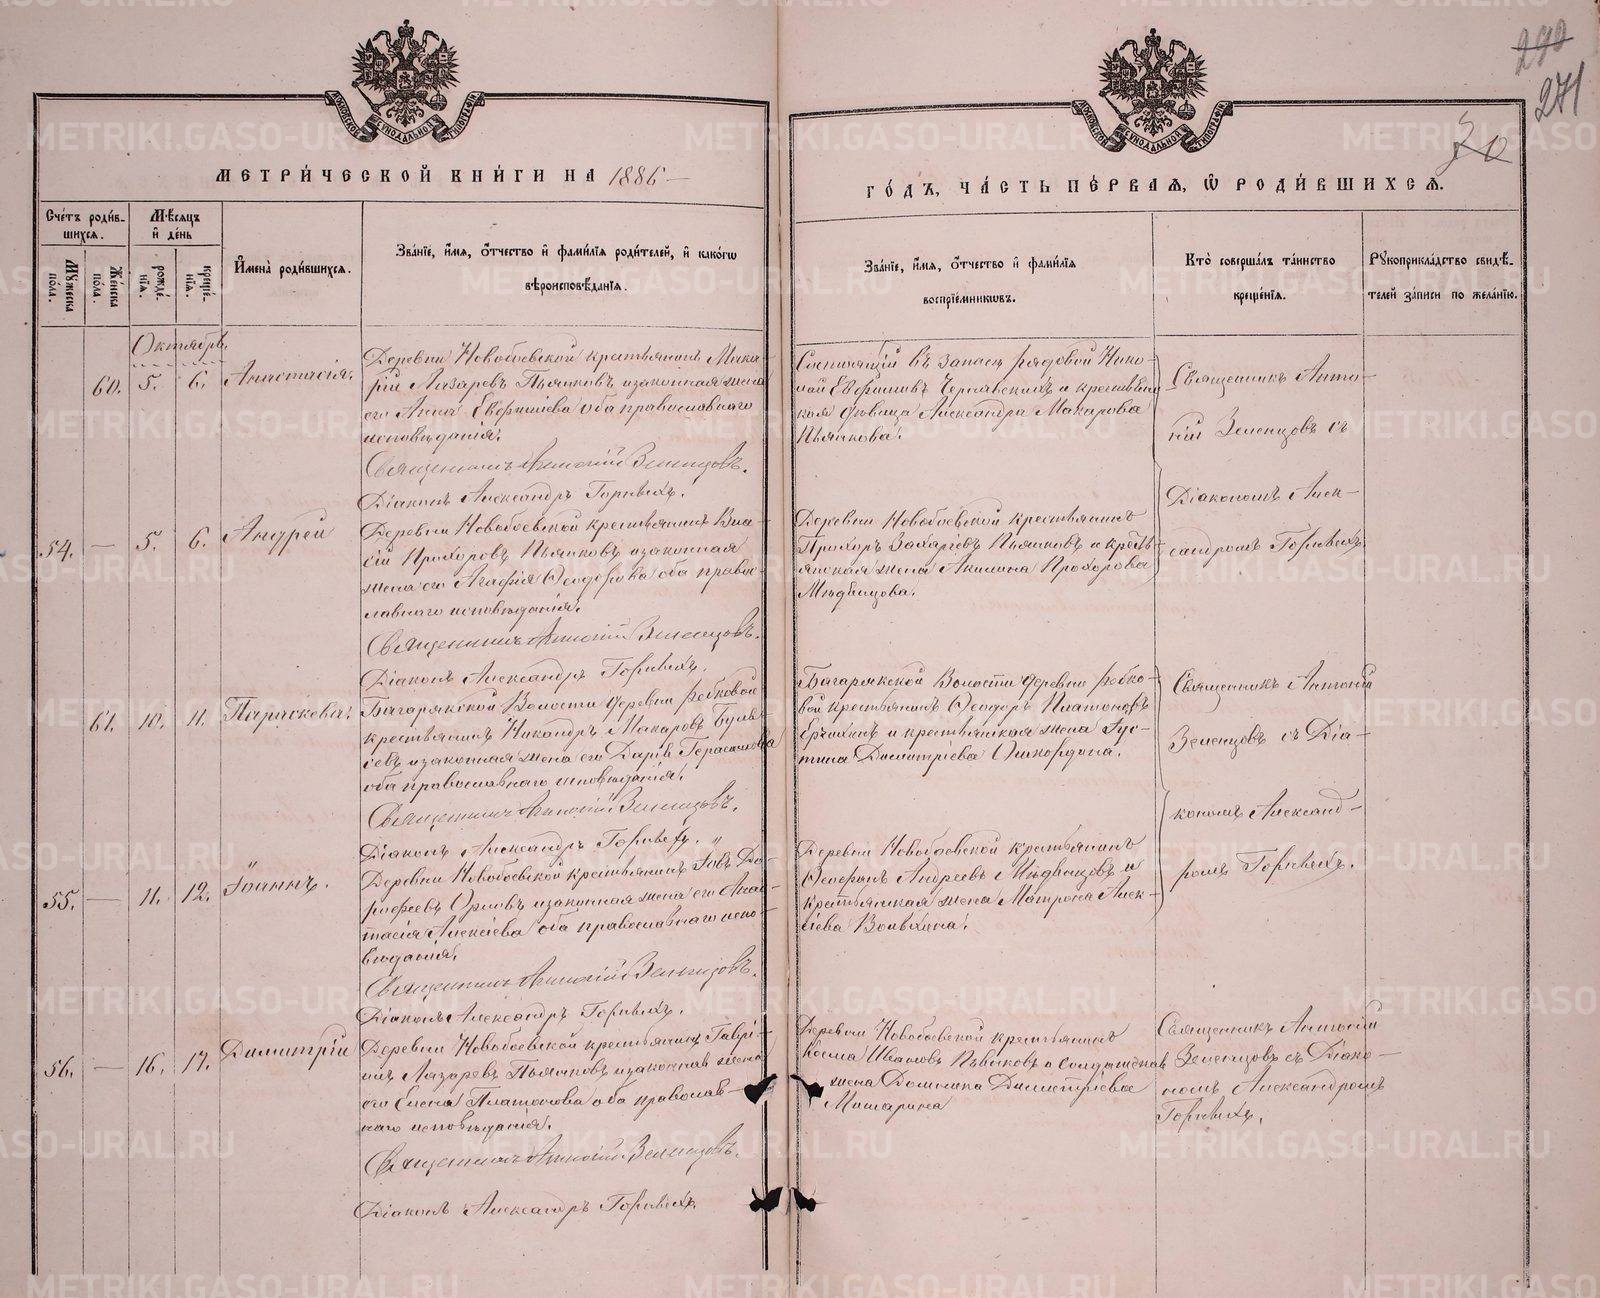 290
271
30
МОСКОВСКОЙ СѴНОДАЛЬНОЙ ТИПОГРАФІИ
МОСКОВСКОЙ СѴНОДАЛЬНОЙ ТИПОГРАФІИ
МЕТРИ́ЧЕСКОЙ КНИ́ГИ НА 1886 —
ГО́ДЪ, ЧА́СТЬ ПЕ́РВАЯ, Ѡ РОДИ́ВШИХСЯ.
Сче́тъ роди́в-
шихся.
Мѣ́сяцъ
и҆ де́нь
Му́жеска по́ла.
Же́нска по́ла.
рожде́-
нїя.
креще́-
нїя.
И҆мена̀ роди́вшихся.
Зва́нїе, и҆́мя, ѻ҆́тчество и҆ фами́лїя роди́телей, и҆ како́гѡ
вѣроисповѣ́данїя.
Зва́нїе, и҆́мя, ѻ҆́тчество и҆ фами́лїя
воспрїе́мниковъ.
Кто̀ соверша́лъ та́инство
креще́нїя.
Рꙋкоприкла́дство свидѣ́-
телей за́писи по жела́нїю.
Октябрь
60. 5. 6. Анастасія.
Деревни Новобоевской крестьянинъ Мака-
рій Лазаревъ Пьянковъ и законная жена
его Анна Евфиміева оба православнаго
исповѣданія.
Священникъ Антоній Зеленцовъ.
Діаконъ Александръ Горныхъ.
Состоящій въ запасѣ рядовой Нико-
лай Евфимовъ Чернавскихъ и крестьян-
ская дѣвица Александра Макарова
Пьянкова.
Священникъ Анто-
ній Зеленцовъ съ
Діакономъ Алек-
сандромъ Горныхъ.
54. — 5. 6. Андрей
Деревни Новобоевской крестьянинъ Вла-
сій Прохоровъ Пьянковъ и законная
жена его Агафія Ѳеодорова оба правос-
лавнаго исповѣданія.
Священникъ Антоній Зеленцовъ.
Діаконъ Александръ Горныхъ.
Деревни Новобоевской крестьянинъ
Прохоръ Захаріевъ Пьянковъ и кресть-
янская жена Акилина Прохорова
Мѣдвѣдцова.
61. 10. 11. Параскева.
Багарякской Волости деревни Жебковой
крестьянинъ Никандръ Макаровъ
и законная жена его Дарія Герасимова
оба православнаго исповѣданія.
Священникъ Антоній Зеленцовъ.
Діаконъ Александръ Горныхъ.
Багарякской Волости деревни
крестьянинъ Ѳеодоръ Платоновъ
и крестьянская жена Іус-
тина Димитріева
Священникъ Антоній
Зеленцовъ съ Діа-
кономъ Александ-
ромъ Горныхъ.
55. — 11. 12. Іоаннъ.
Деревни Новобоевской крестьянинъ Іовъ До-
рофеевъ Орловъ и законная жена его Анас-
тасія Алексіева оба православнаго испо-
вѣданія.
Священникъ Антоній Зеленцовъ.
Діаконъ Александръ Горныхъ.
Деревни Новобоевской крестьянинъ
Андреевъ и
крестьянская жена Матрона Алек-
сіева
56. — 16. 17. Димитрій
Деревни Новобоевской крестьянинъ Гаврі-
илъ Лазаревъ Пьянковъ и законная жена
его Елена Платонова оба православ-
наго исповѣданія.
Священникъ Антоній Зеленцовъ.
Діаконъ Александръ Горныхъ.
Деревни Новобоевской крестьянинъ
Косма Ивановъ Пьянковъ и солдатская
жена Домника Димитріева
Мишарина
Священникъ Антоній
Зеленцовъ съ Діако-
номъ Александромъ
Горныхъ.
METRIKI.GASO-URAL.RU